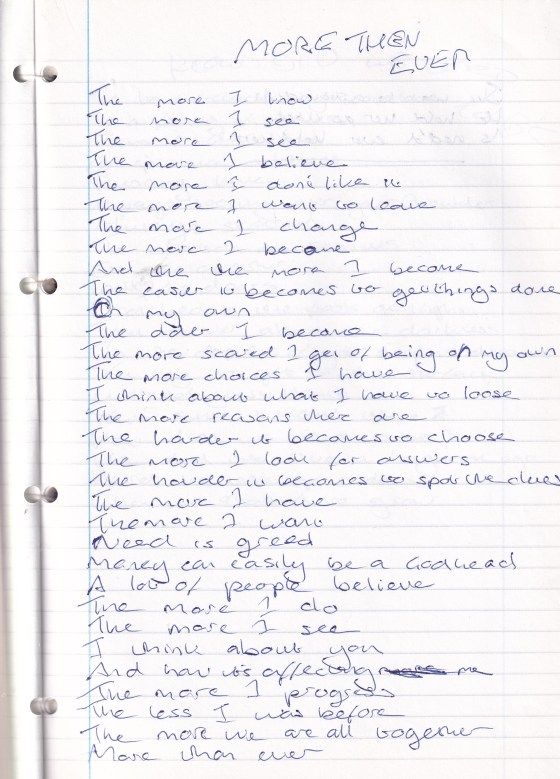 MORE THEN
EVER
The more I know
The more I see
The more I see
The more I believe
The more I don't like it
The more I want to leave
The more I change
The more I become
And the the more I become
The easier it becomes to get things done
On my own
The older I become
The more scared I get of being on my own
The more choices I have
I think about what I have to loose
The more reasons there are
The harder it becomes to choose
The more I look for answers
The harder it becomes to spot the clues
The more I have
The more I want
Need is greed
Money can easily be a Godhead
A lot of people believe
The more I do
The more I see
I think about you
And how its affecting me
The more I progress
The less I was before
The more we are all together
More than ever